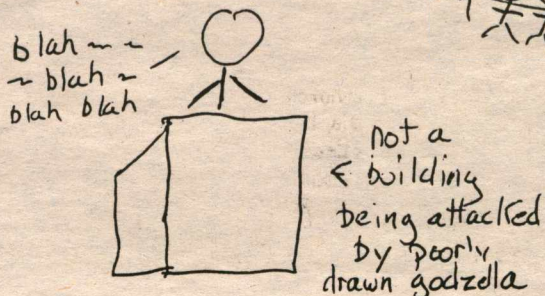 blah ~ ~
~ blah ~
blah blah
not a
← building
being attacked
by poorly
drawn godzella